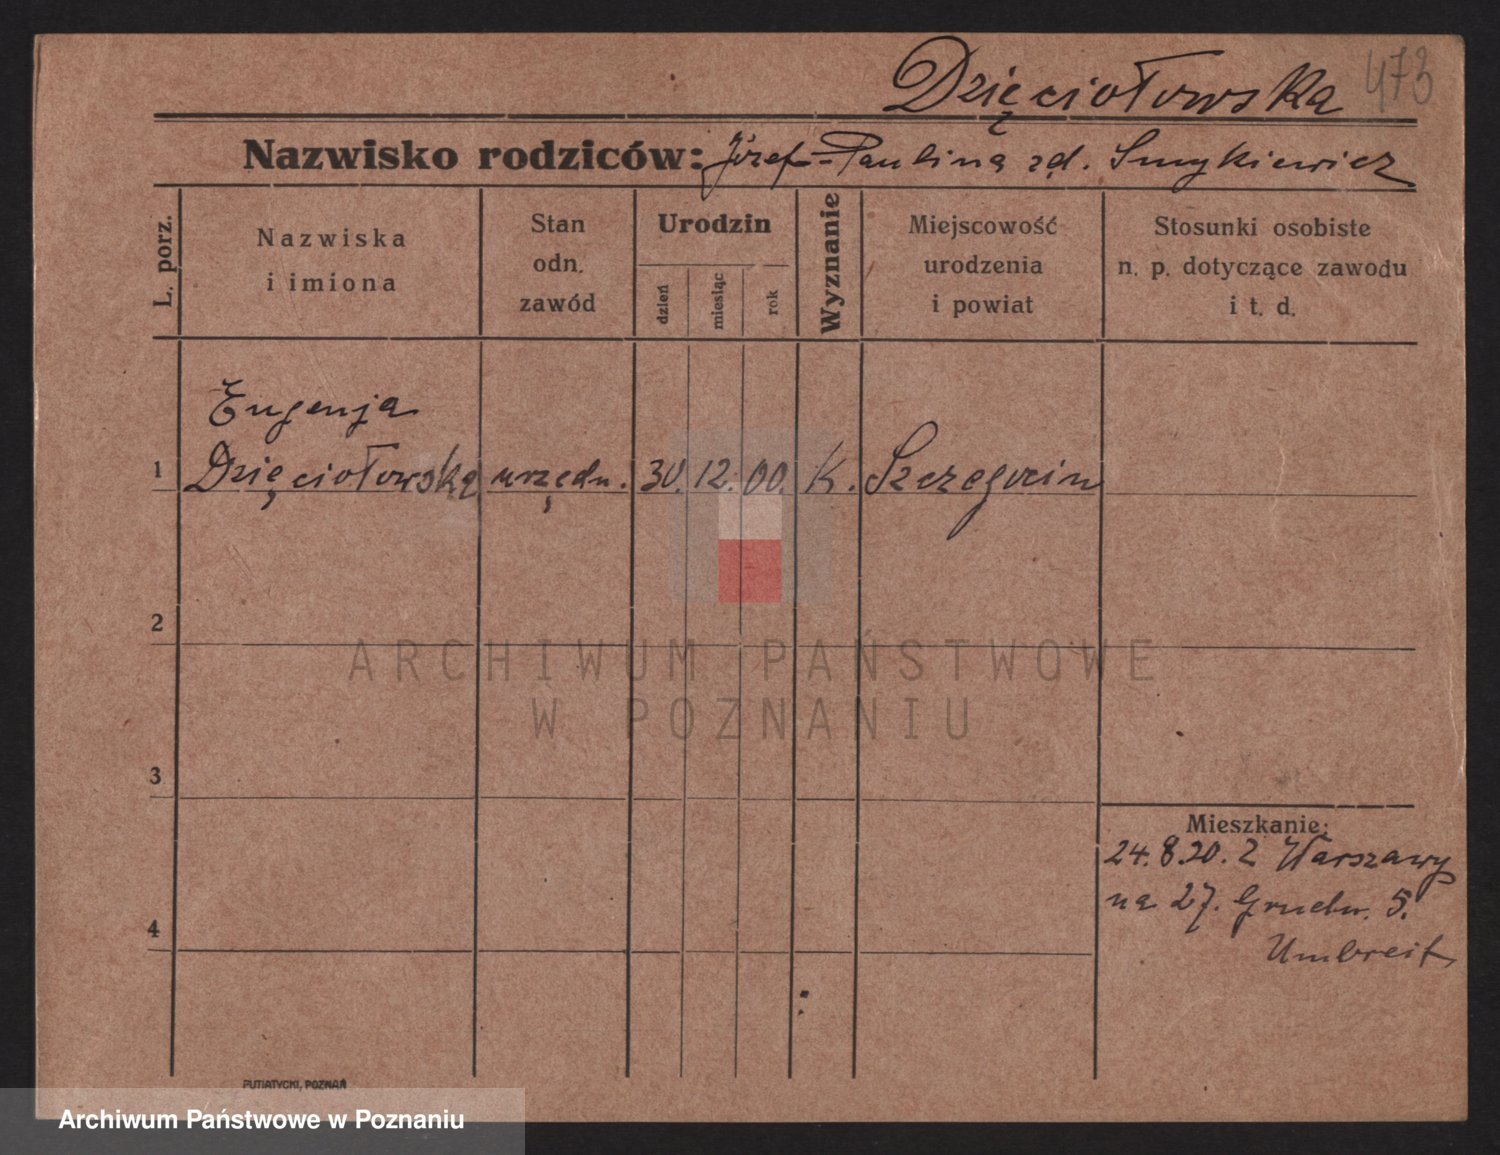 Dzięciołowska 473
Nazwisko rodziców: Józef = Paulina zd. Smykiewicz
L. porz.
Nazwiska
i imiona
Stan
odn.
zawód
Urodzin
dzień
miesiąc
rok
Wyznanie
Miejscowość
urodzenia
i powiat
Stosunki osobiste
n. p. dotyczące zawodu
i t. d.
Eugenja
1 Dzięciołowska urzędn. 30. 12. 00. K. Szczegocin
2
ARCHIWUM PAŃSTWOWE
W POZNANIU
3
Mieszkanie:
24.8.20. Z Warszawy
na 27. Grudn. 5.
4
Umbreit
PUTIATYCKI, POZNAŃ
Archiwum Państwowe w Poznaniu